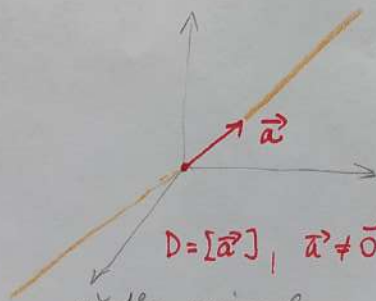 a⃗
D=[a⃗], a⃗ ≠ 0⃗